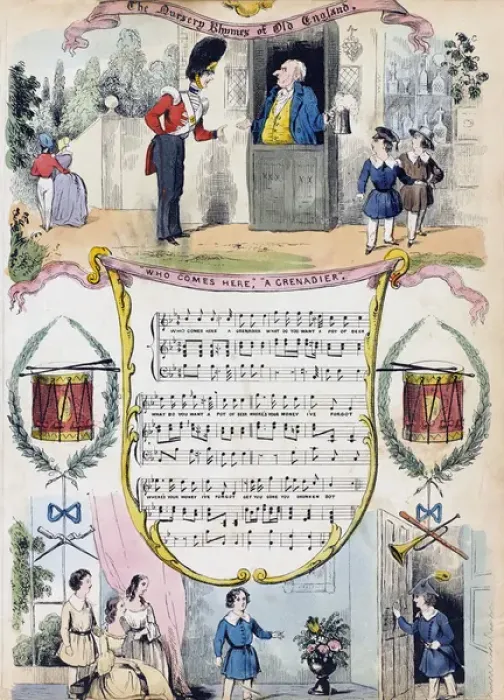 The Nursery Rhymes of Old England.
WHO COMES HERE, "A GRENADIER.
WHO COMES HERE A GRENADIER WHAT DO YOU WANT A POT OF BEER
WHAT DO YOU WANT A POT OF BEER WHERES YOUR MONEY I'VE FORGOT
WHERES YOUR MONEY I'VE FORGOT GET YOU GONE YOU DRUNKEN SOT